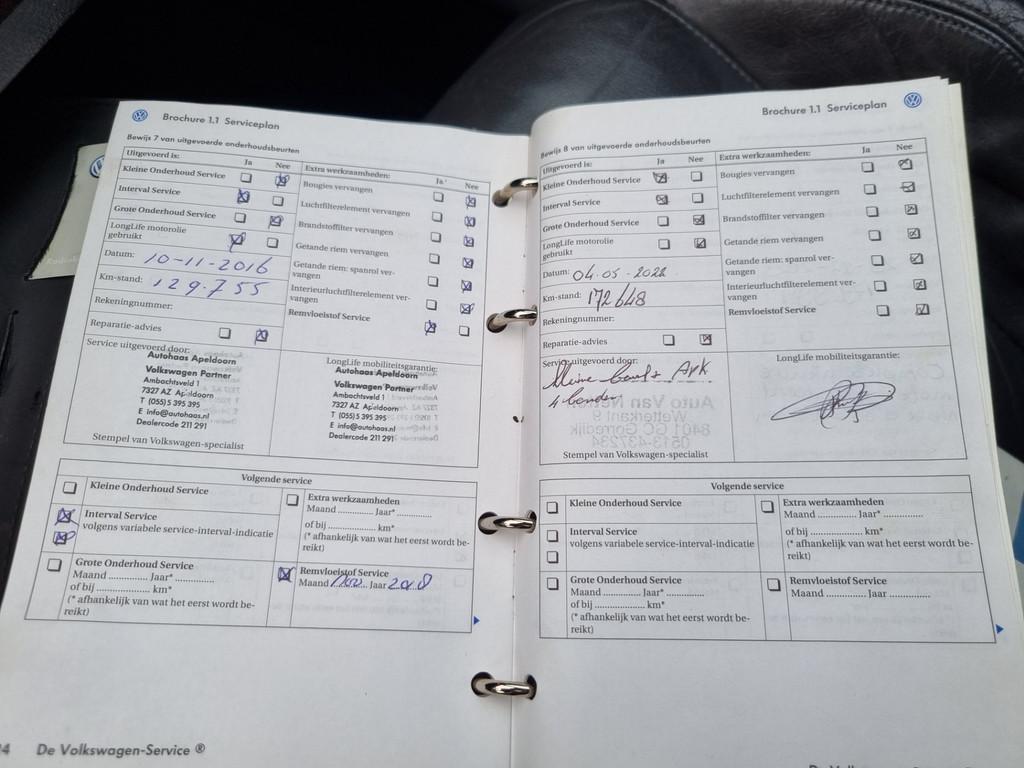 Brochure 1.1 Serviceplan
Bewijs 7 van uitgevoerde onderhoudsbeurten
Uitgevoerd is: Ja Nee
Kleine Onderhoud Service
Interval Service
Grote Onderhoud Service
LongLife motorolie
gebruikt
Datum: 10-11-2016
Km-stand: 129.755
Rekeningnummer:
Reparatie-advies
Extra werkzaamheden: Ja Nee
Bougies vervangen
Luchtfilterelement vervangen
Brandstoffilter vervangen
Getande riem vervangen
Getande riem: spanrol ver-
vangen
Interieurluchtfilterelement ver-
vangen
Remvloeistof Service
Service uitgevoerd door:
Autohaas Apeldoorn
Volkswagen Partner
Ambachtsveld 1
7327 AZ Apeldoorn
T (055) 5 395 395
E info@autohaas.nl
Dealercode 211 291
Stempel van Volkswagen-specialist
LongLife mobiliteitsgarantie:
Autohaas Apeldoorn
Volkswagen Partner
Ambachtsveld 1
7327 AZ Apeldoorn
T (055) 5 395 395
E info@autohaas.nl
Dealercode 211 291
Volgende service
Kleine Onderhoud Service
Interval Service
volgens variabele service-interval-indicatie
Grote Onderhoud Service
Maand ............. Jaar* .............
of bij ............... km*
(* afhankelijk van wat het eerst wordt be-
reikt)
Extra werkzaamheden
Maand ............. Jaar* .............
of bij ............... km*
(* afhankelijk van wat het eerst wordt be-
reikt)
Remvloeistof Service
Maand Nov Jaar 2018
14 De Volkswagen-Service ®
Brochure 1.1 Serviceplan
Bewijs 8 van uitgevoerde onderhoudsbeurten
Uitgevoerd is: Ja Nee
Kleine Onderhoud Service
Interval Service
Grote Onderhoud Service
LongLife motorolie
gebruikt
Datum: 04-05-2022
Km-stand: 172648
Rekeningnummer:
Reparatie-advies
Extra werkzaamheden: Ja Nee
Bougies vervangen
Luchtfilterelement vervangen
Brandstoffilter vervangen
Getande riem vervangen
Getande riem: spanrol ver-
vangen
Interieurluchtfilterelement ver-
vangen
Remvloeistof Service
Service uitgevoerd door:
Kleine beurt APK
4 banden
Stempel van Volkswagen-specialist
LongLife mobiliteitsgarantie:
Volgende service
Kleine Onderhoud Service
Interval Service
volgens variabele service-interval-indicatie
Grote Onderhoud Service
Maand ............. Jaar* .............
of bij ............... km*
(* afhankelijk van wat het eerst wordt be-
reikt)
Extra werkzaamheden
Maand ............. Jaar* .............
of bij ............... km*
(* afhankelijk van wat het eerst wordt be-
reikt)
Remvloeistof Service
Maand ............. Jaar .............